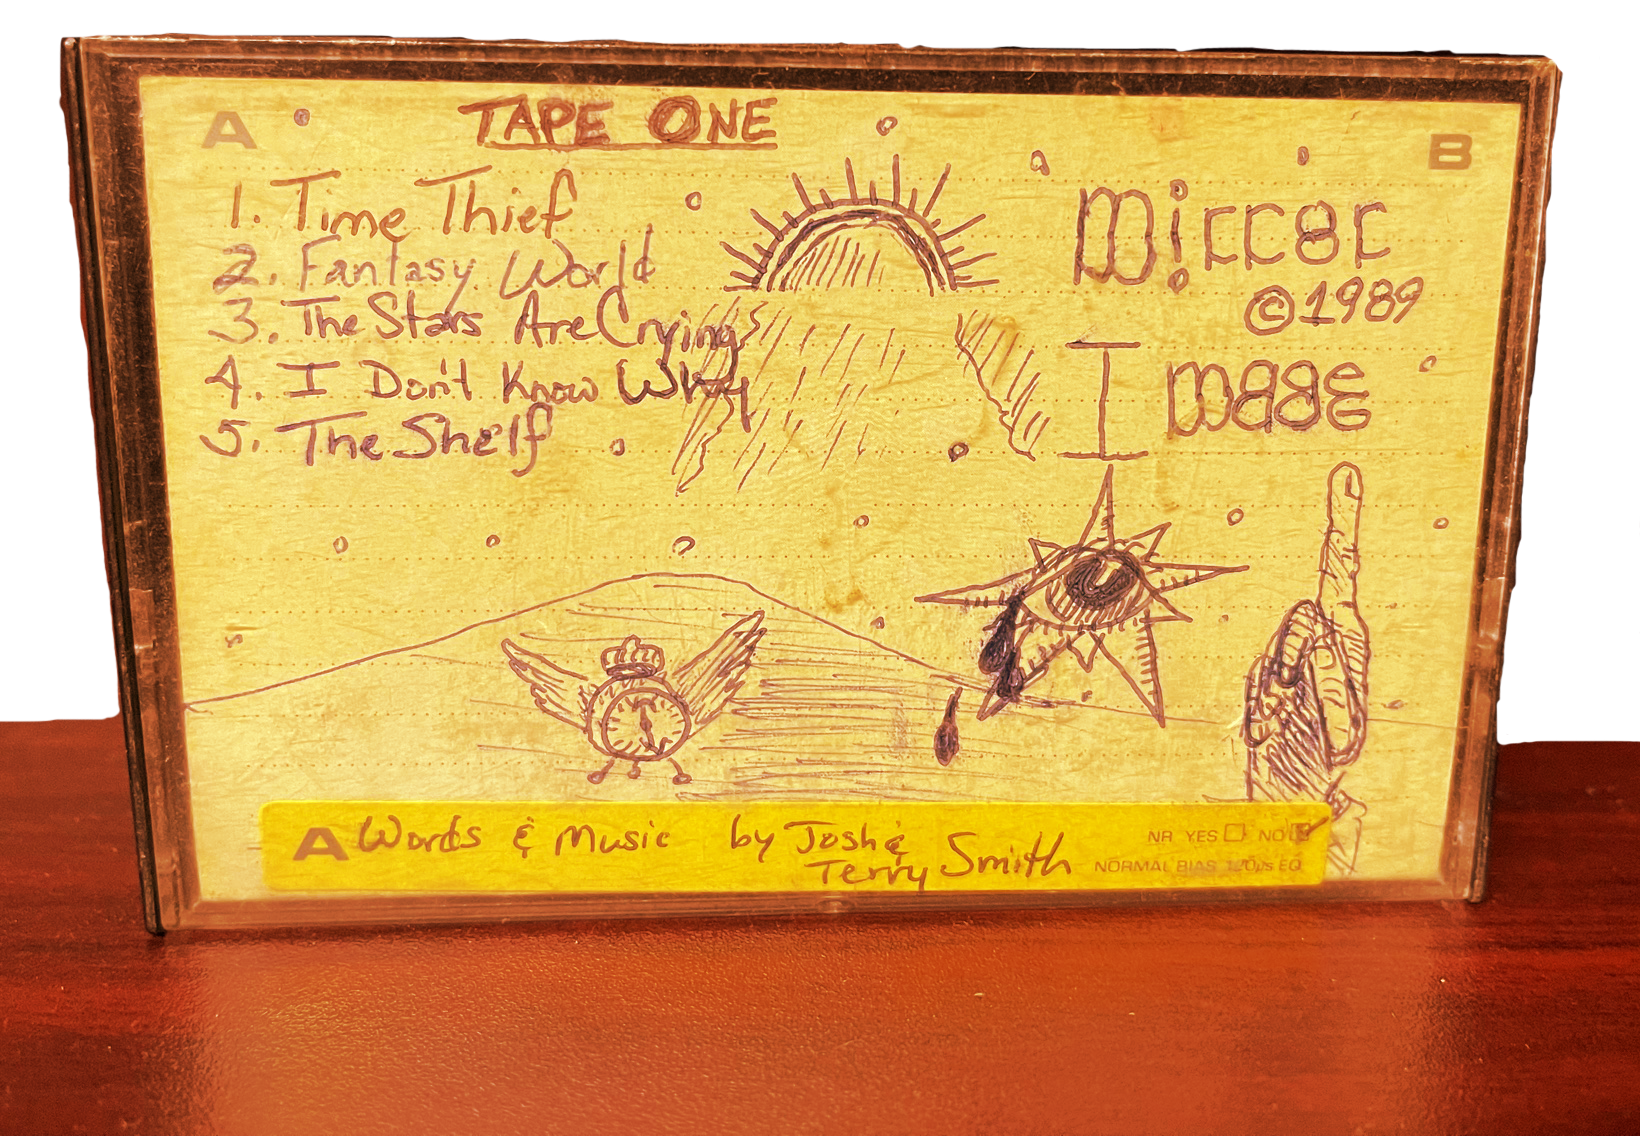 A
TAPE ONE
B
1. Time Thief
2. Fantasy World
3. The Stars Are Crying
4. I Don't Know Why
5. The Shelf
Mirror
©1989
Image
A Words & Music by Josh &
Terry Smith
NR YES NO
NORMAL BIAS 120µs EQ